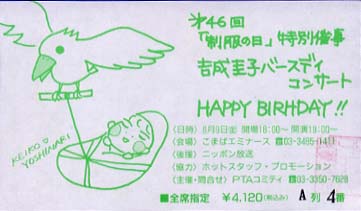 第46回
「制服の日」特別催事
吉成圭子バースディ
コンサート
HAPPY BIRHDAY!!
KEIKO♡
YOSHINARI
〈日時〉8月9日㊎ 開場18:00〜 開演19:00〜
〈会場〉こまばエミナース ☎03-3485-1411
〈後援〉ニッポン放送
〈協力〉ホットスタッフ・プロモーション
〈主催・問合せ〉PTAコミティ ☎03-3350-7628
■全席指定 ¥4,120(税込み) A列 4番